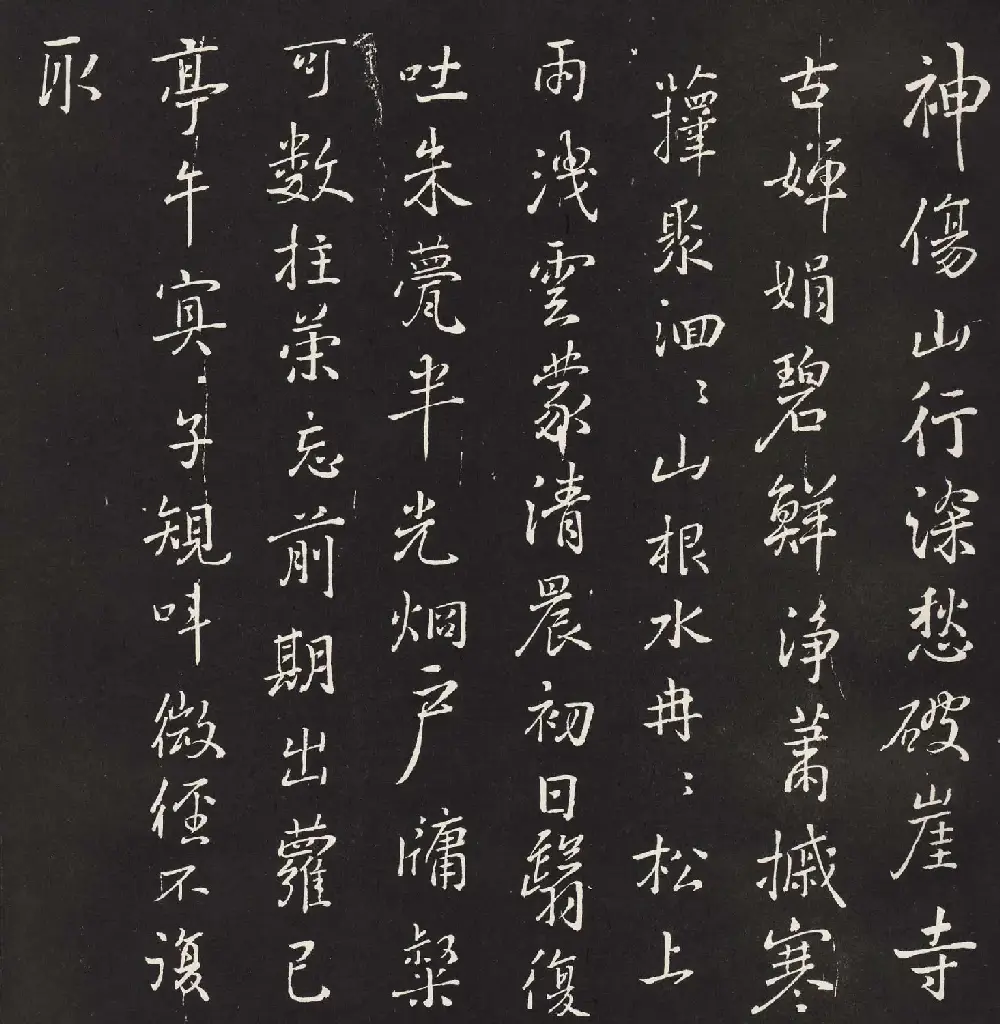 神傷山行深愁破崖寺
古嬋娟碧鮮淨蕭摵寒
籜聚洄〻山根水冉〻松上
雨洩雲蒙清晨初日翳復
吐朱甍半光烱戶牖粲
可数拄策忘前期出蘿已
亭午冥〻子規叫微徑不復
取